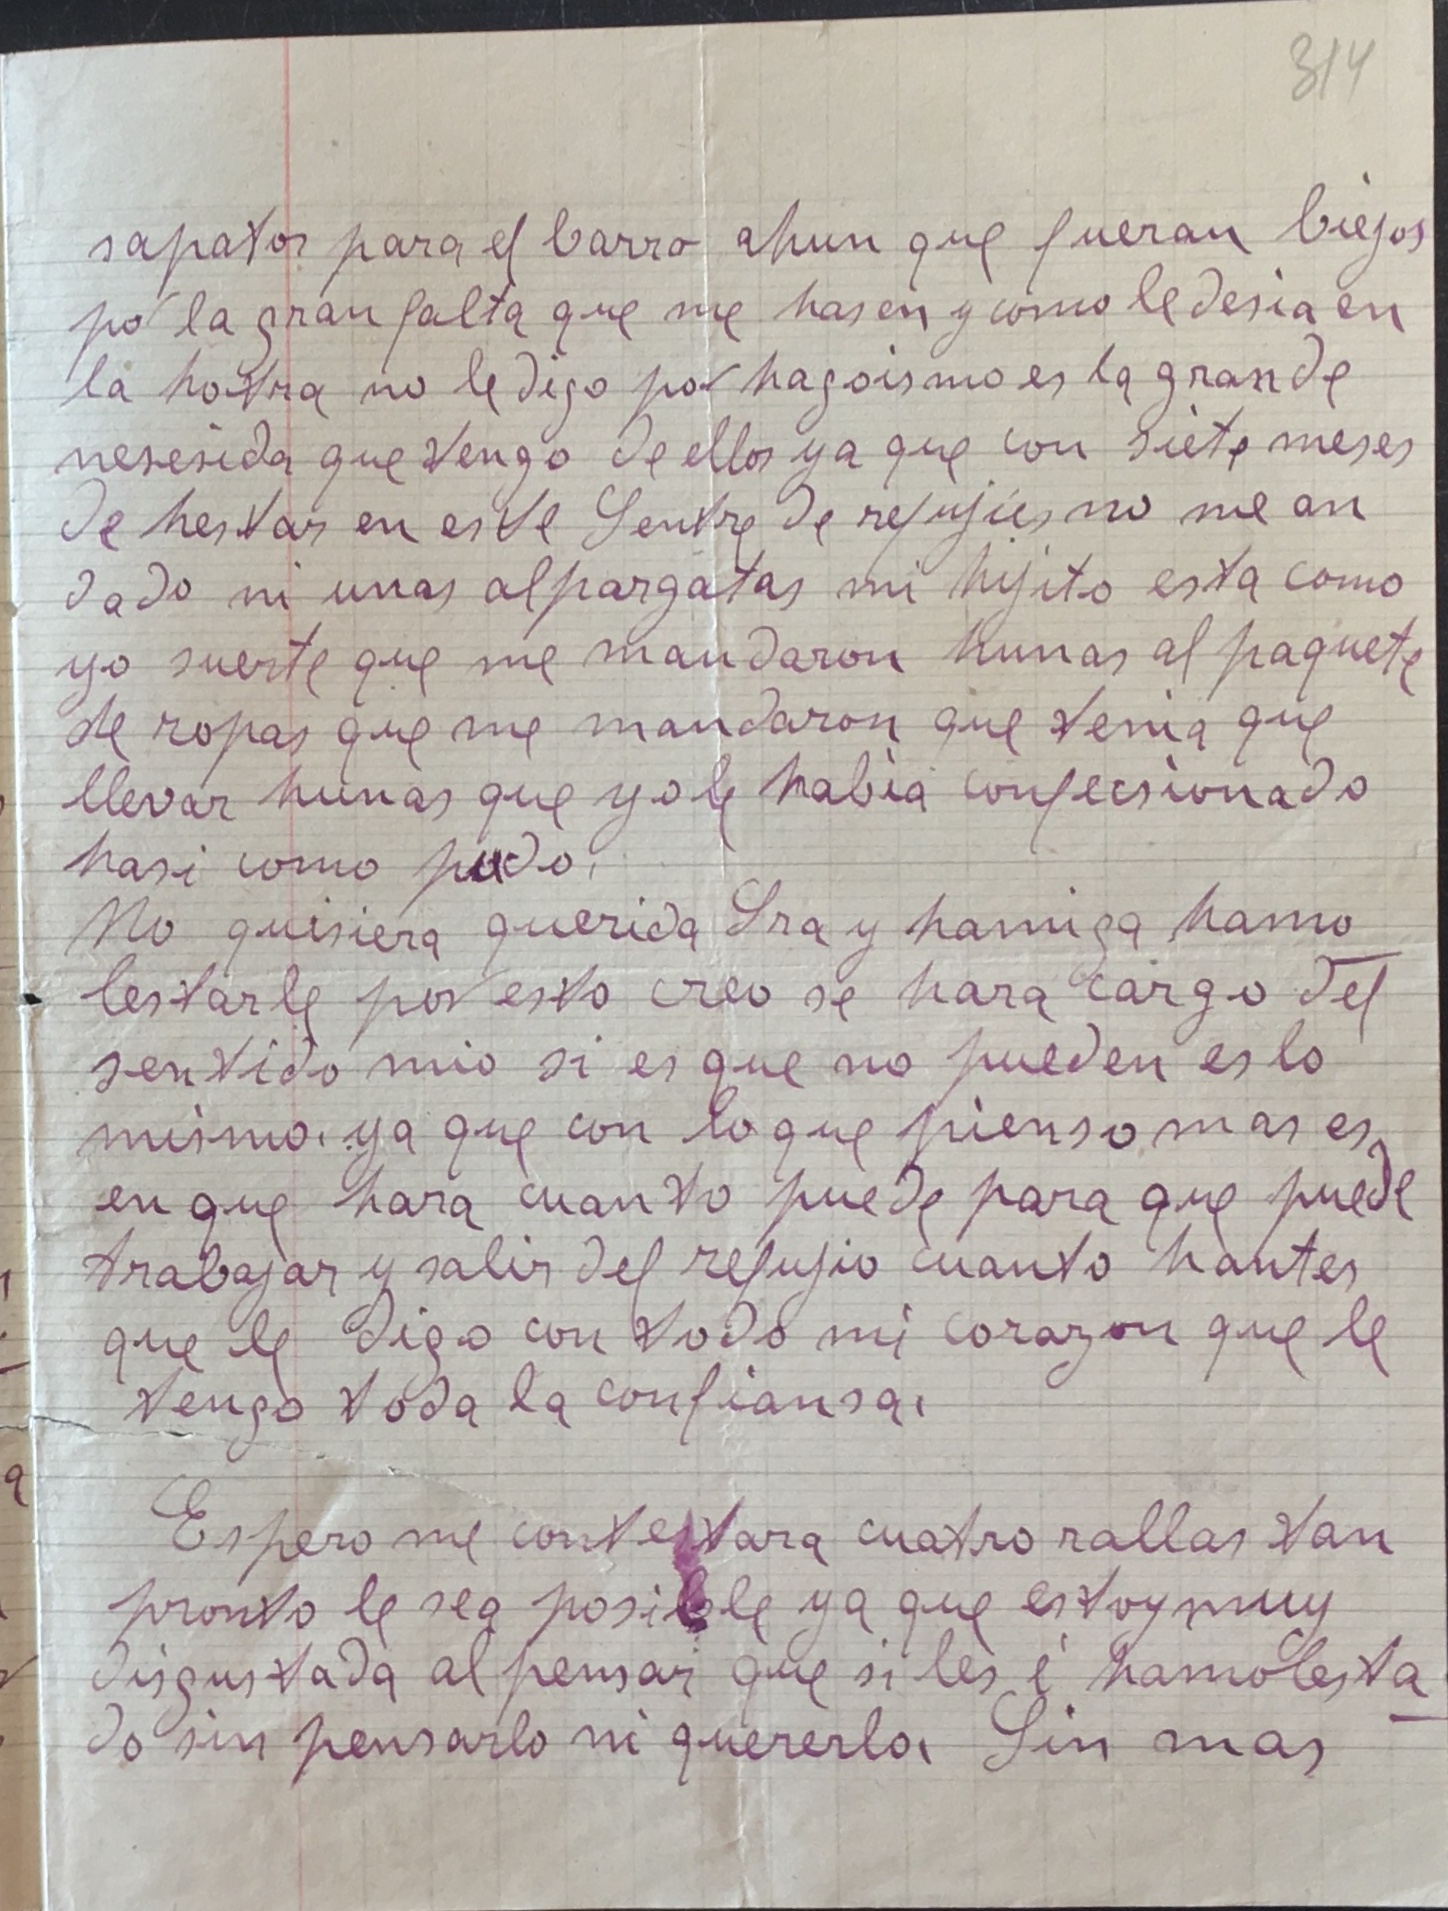 314
sapatos para el barro ahun que fueran biejos
por la gran falta que me hasen y como le desia en
la hotra no le digo por hagoismo es la grande
nesesida que tengo de ellos ya que con siete meses
de hestar en este Sentre de refujies no me an
dado ni unas alpargatas mi hijito esta como
yo suerte que me mandaron hunas al paquete
de ropas que me mandaron que tenia que
llevar hunas que yo le habia confecsionado
hasi como pudo.
No quisiera querida Sra y hamiga hamo
lestarle por esto creo se hara cargo del
sentido mio si es que no pueden es lo
mismo. ya que con lo que pienso mas es
en que hara cuanto puede para que puede
trabajar y salir del refujio cuanto hantes
que le digo con todo mi corazon que le
tengo toda la confiansa.
Espero me contestara cuatro rallas tan
pronto le sea posible ya que estoy muy
disgustada al pensar que si les é hamolesta
do sin pensarlo ni quererlo. Sin mas